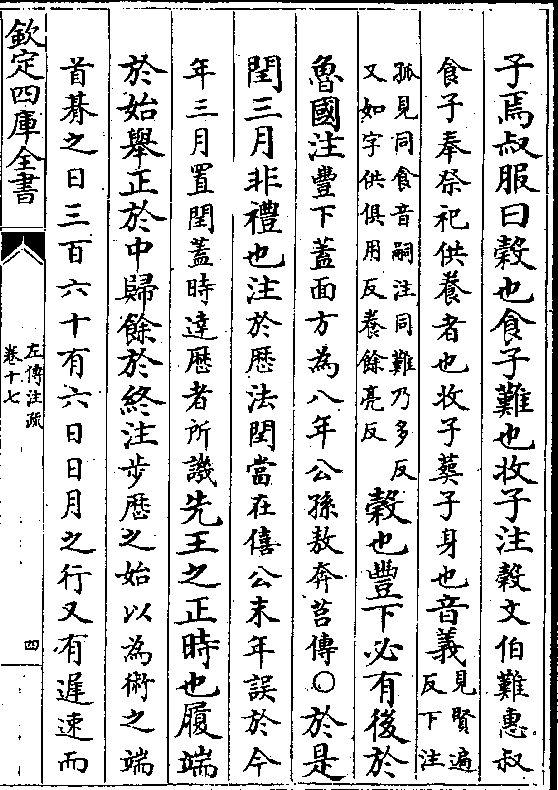 子焉叔服曰穀也食子難也收子注穀文伯難惠叔
食子奉祭祀供養者也收子葬子身也音義見賢遍
反下注
孤見同食音嗣注同難乃多反
又如字供俱用反養餘亮反
穀也豐下必有後於
魯國注豐下蓋面方為八年公孫敖奔莒傳○於是
閏三月非禮也注於厯法閏當在僖公末年誤於今
年三月置閏蓋時達厯者所譏先王之正時也履端
於始舉正於中歸餘於終注步厯之始以為術之端
首朞之日三百六十有六日日月之行又有遲速而
欽定四庫全書
左傳注疏
卷十七
四